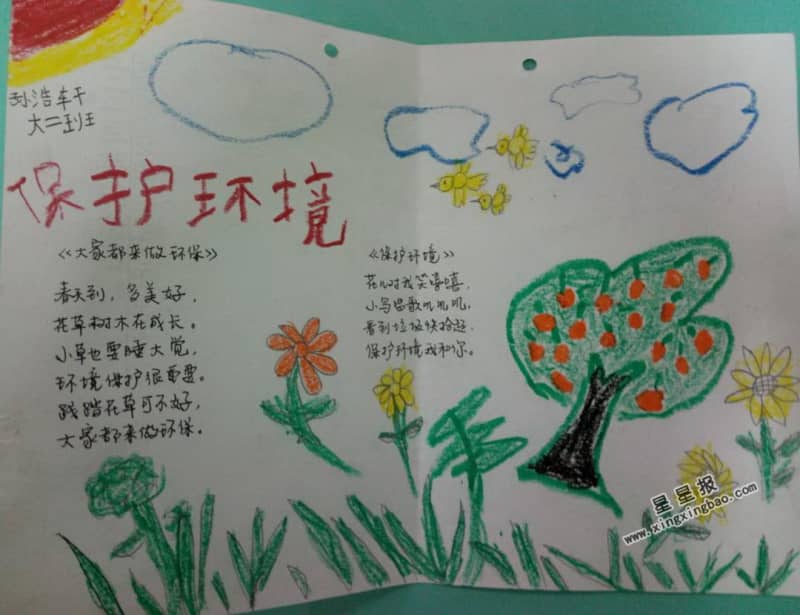 孙浩轩
大二班
保护环境
《大家都来做环保》
春天到，多美好，
花草树木在成长。
小草也要睡大觉，
环境保护很重要。
践踏花草可不好，
大家都来做环保。
《保护环境》
花儿对我笑嘻嘻，
小鸟唱歌叽叽叽，
看到垃圾快捡起，
保护环境我和你。
星星报
www.xingxingbao.com